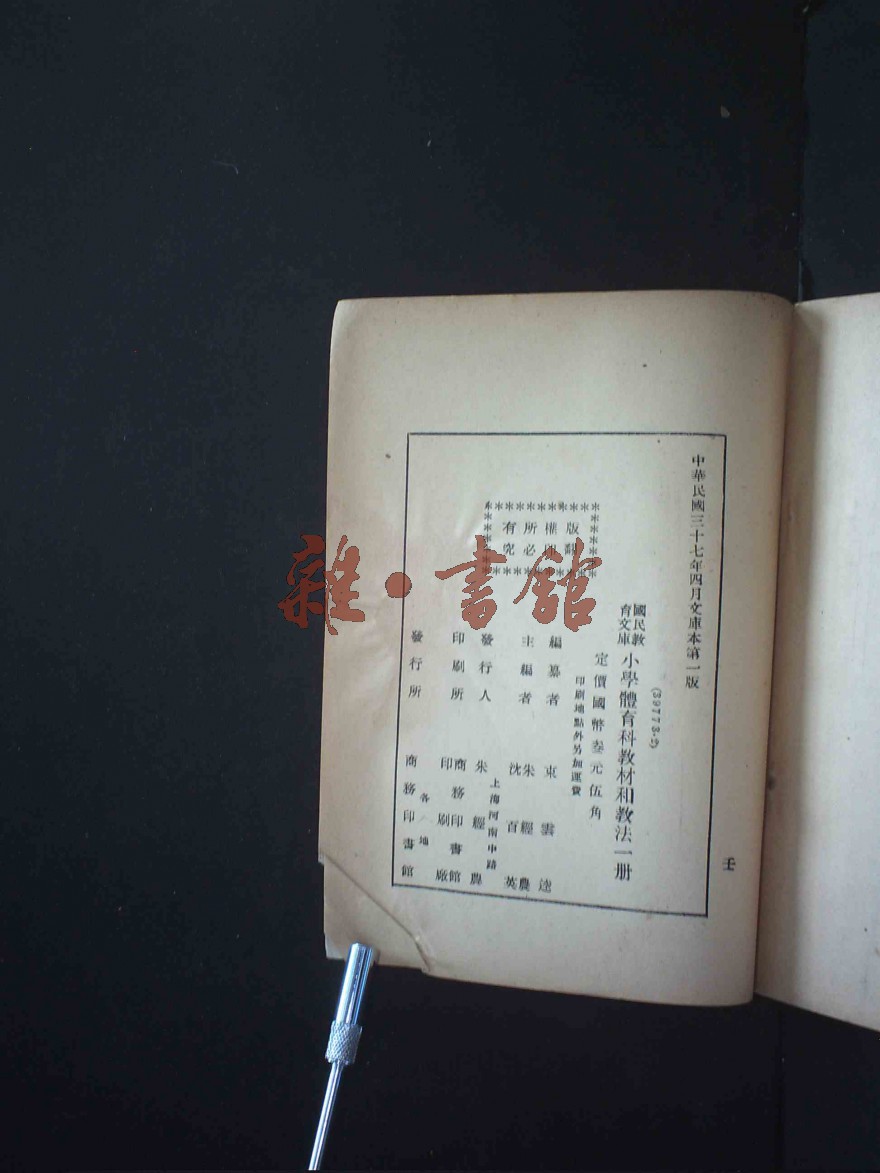 中華民國三十七年四月文庫本第一版
(39773·2)
國民教育文庫
小學體育科教材和教法一册
定價國幣叁元伍角
印刷地點外另加運費
版權所有
翻印必究
編纂者 束雲逵
主編者 朱經農 沈百英
發行人 朱經農
上海河南中路
印刷所 商務印書館印刷廠
發行所 商務印書館
各地
壬
雜·書館